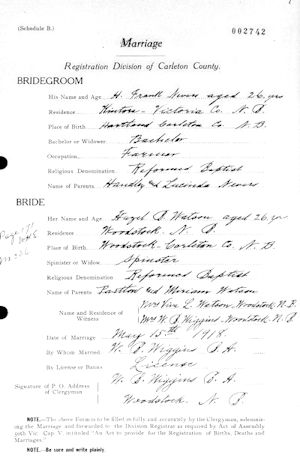 (Schedule B.)
002742
Marriage
Registration Division of Carleton County:
BRIDEGROOM
His Name and Age H. Grantt Nevers aged 26 yrs
Residence Kintore - Victoria Co. N. B.
Place of Birth Hartland Carleton Co. N. B.
Bachelor or Widower Bachelor
Occupation Farmer
Religious Denomination Reformed Baptist
Name of Parents Handley & Lucinda Nevers
BRIDE
Her Name and Age Hazel B Watson aged 26 yrs
Residence Woodstock. N. B.
Place of Birth Woodstock - Carleton Co. N. B.
Spinster or Widow Spinster
Religious Denomination Reformed Baptist
Name of Parents and Miriam Watson
Name and Residence of Witness
Mrs L. Watson, Woodstock, N. B.
Mrs W. B. Wiggins, Woodstock, N. B.
Date of Marriage May 15th 1918.
By Whom Married W. B. Wiggins B. A.
By License or Banns License
Signature of P. O. Address of Clergyman
W. B. Wiggins B. A.
Woodstock. N. B.
NOTE.—The above Form is to be filled in fully and accurately by the Clergyman, solemnizing the Marriage and forwarded to the Division Registrar as required by Act of Assembly 50th Vic. Cap V. intituled 'An Act to provide for the Registration of Births, Deaths and Marriages.'
NOTE.—Be sure and write plainly.